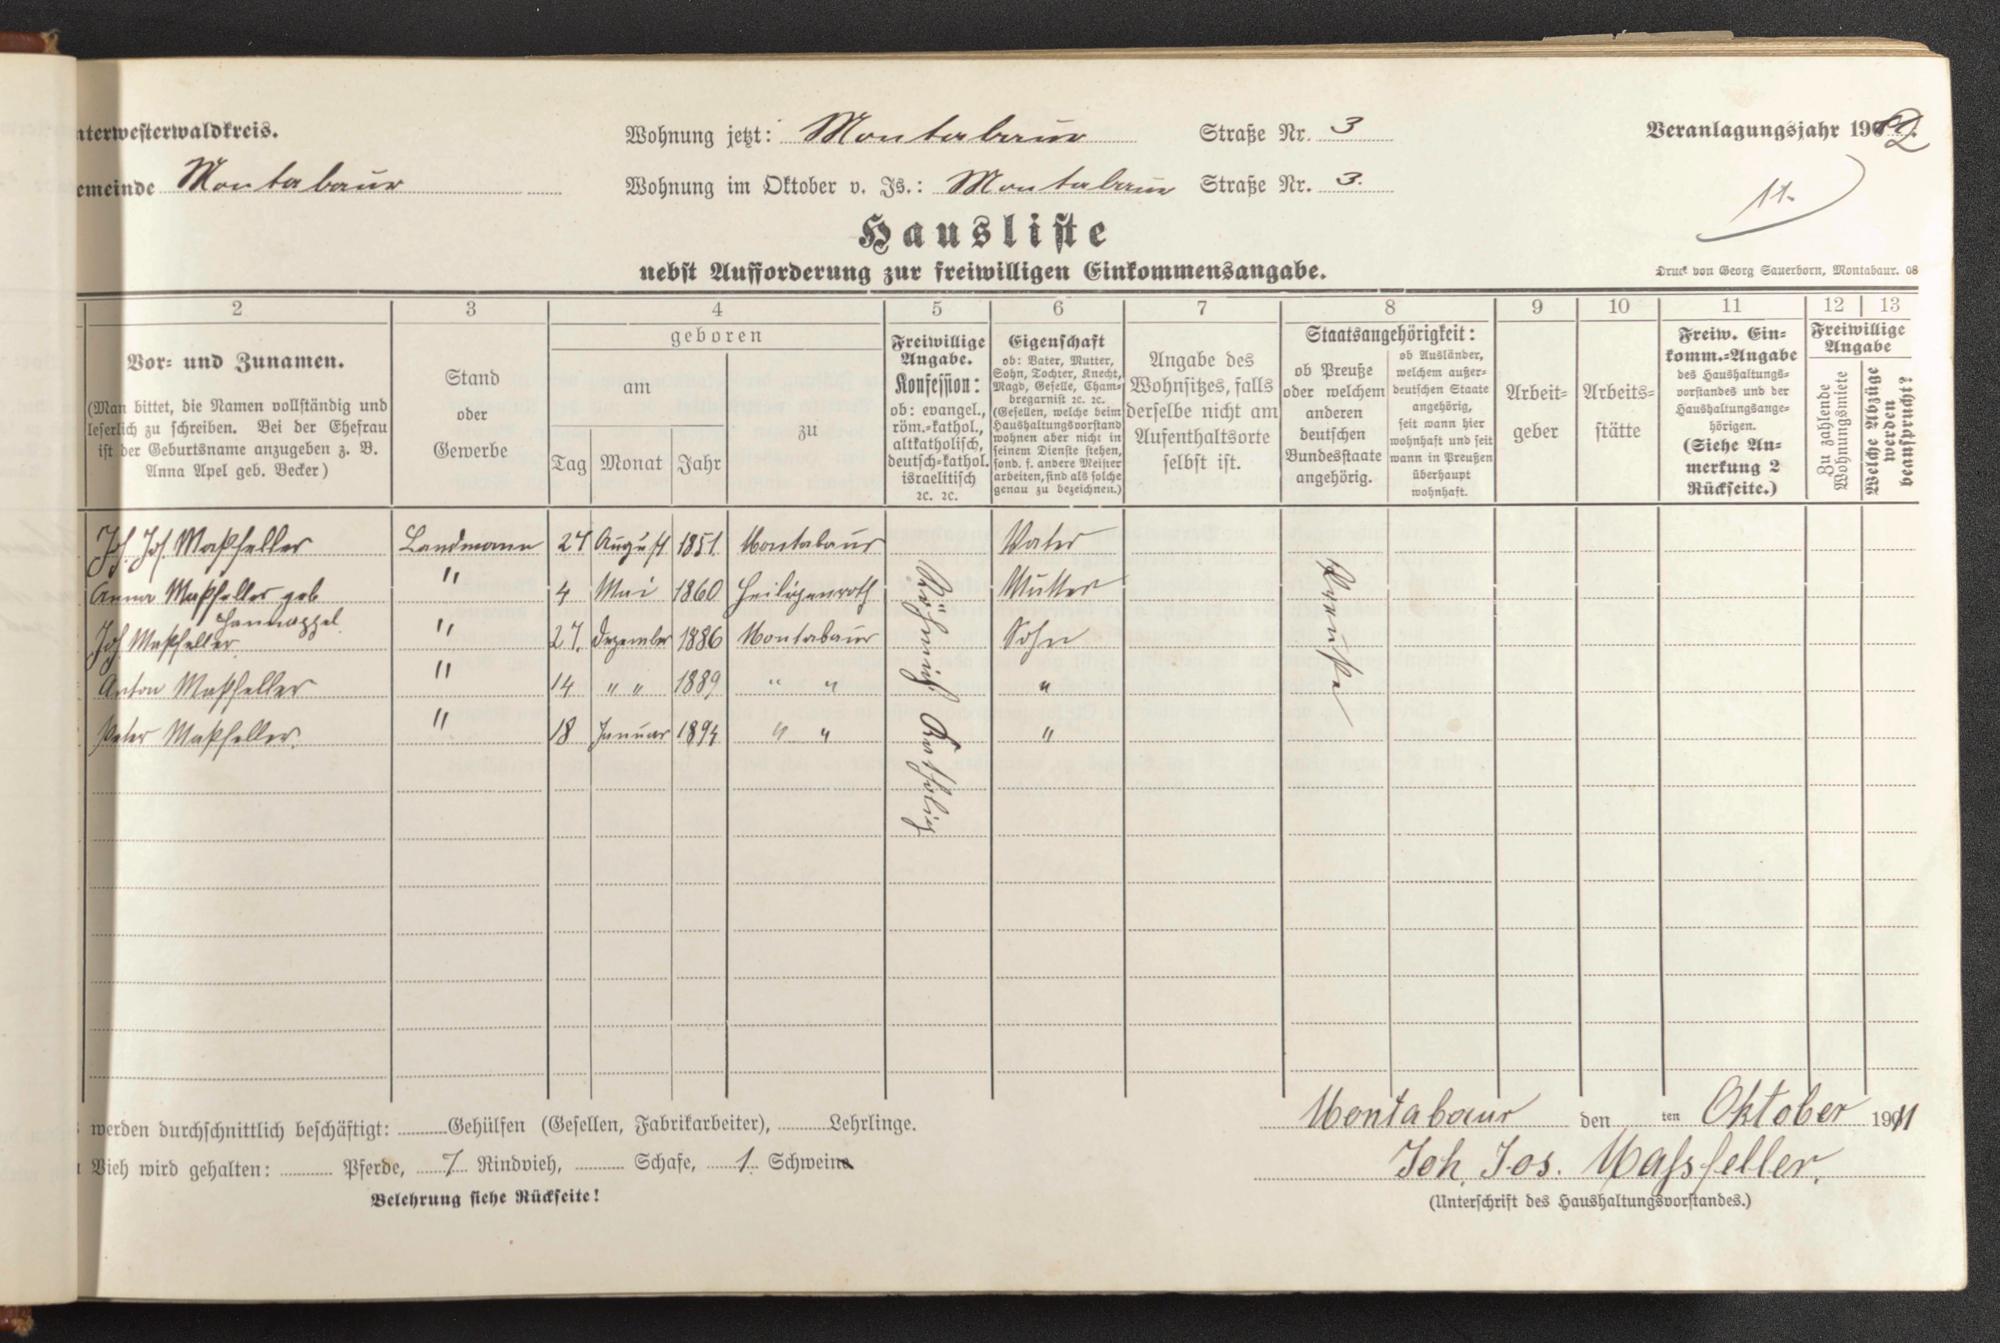 nterwesterwaldkreis.
Wohnung jetzt: Montabaur Straße Nr. 3
Veranlagungsjahr 1912.
emeinde Montabaur
Wohnung im Oktober v. Js.: Montabaur Straße Nr. 3.
11.
Hausliste
nebst Aufforderung zur freiwilligen Einkommensangabe.
Druck von Georg Sauerborn, Montabaur. 08
2 3 4 5 6 7 8 9 10 11 12 13
Vor- und Zunamen.
(Man bittet, die Namen vollständig und
leserlich zu schreiben. Bei der Ehefrau
ist der Geburtsname anzugeben z. B.
Anna Apel geb. Becker)
Stand
oder
Gewerbe
geboren
am
zu
Tag Monat Jahr
Freiwillige
Angabe.
Konfession:
ob: evangel.,
röm.-kathol.,
altkatholisch,
deutsch-kathol.
israelitisch
ꝛc. ꝛc.
Eigenschaft
ob: Vater, Mutter,
Sohn, Tochter, Knecht,
Magd, Geselle, Cham-
bregarnist ꝛc. ꝛc.
(Gesellen, welche beim
Haushaltungsvorstand
wohnen aber nicht in
seinem Dienste stehen,
sond. f. andere Meister
arbeiten, sind als solche
genau zu bezeichnen.)
Angabe des
Wohnsitzes, falls
derselbe nicht am
Aufenthaltsorte
selbst ist.
Staatsangehörigkeit:
ob Preuße
oder welchem
anderen
deutschen
Bundesstaate
angehörig.
ob Ausländer,
welchem außer-
deutschen Staate
angehörig,
seit wann hier
wohnhaft und seit
wann in Preußen
überhaupt
wohnhaft.
Arbeit-
geber
Arbeits-
stätte
Freiw. Ein-
komm.-Angabe
des Haushaltungs-
vorstandes und der
Haushaltungsange-
hörigen.
(Siehe An-
merkung 2
Rückseite.)
Freiwillige
Angabe
Zu zahlende
Wohnungsmiete
Welche Abzüge
werden
gewünscht?
Joh. Jos. Maßfeller Landmann 27 August 1851 Montabaur Vater
Anna Maßfeller geb " 4 Mai 1860 Heiligenroth Mutter
Hannappel
Joh Maßfeller " 27. Dezember 1886 Montabaur Sohn
Anton Maßfeller " 14 " " 1889 " " "
Peter Maßfeller. " 18 Januar 1894 " " "
Römisch Katholisch
Preuße
werden durchschnittlich beschäftigt: Gehülfen (Gesellen, Fabrikarbeiter), Lehrlinge.
Vieh wird gehalten: Pferde, 7 Rindvieh, Schafe, 1 Schwein
Belehrung siehe Rückseite!
Montabaur den ten Oktober 1911
Joh. Jos. Massfeller.
(Unterschrift des Haushaltungsvorstandes.)